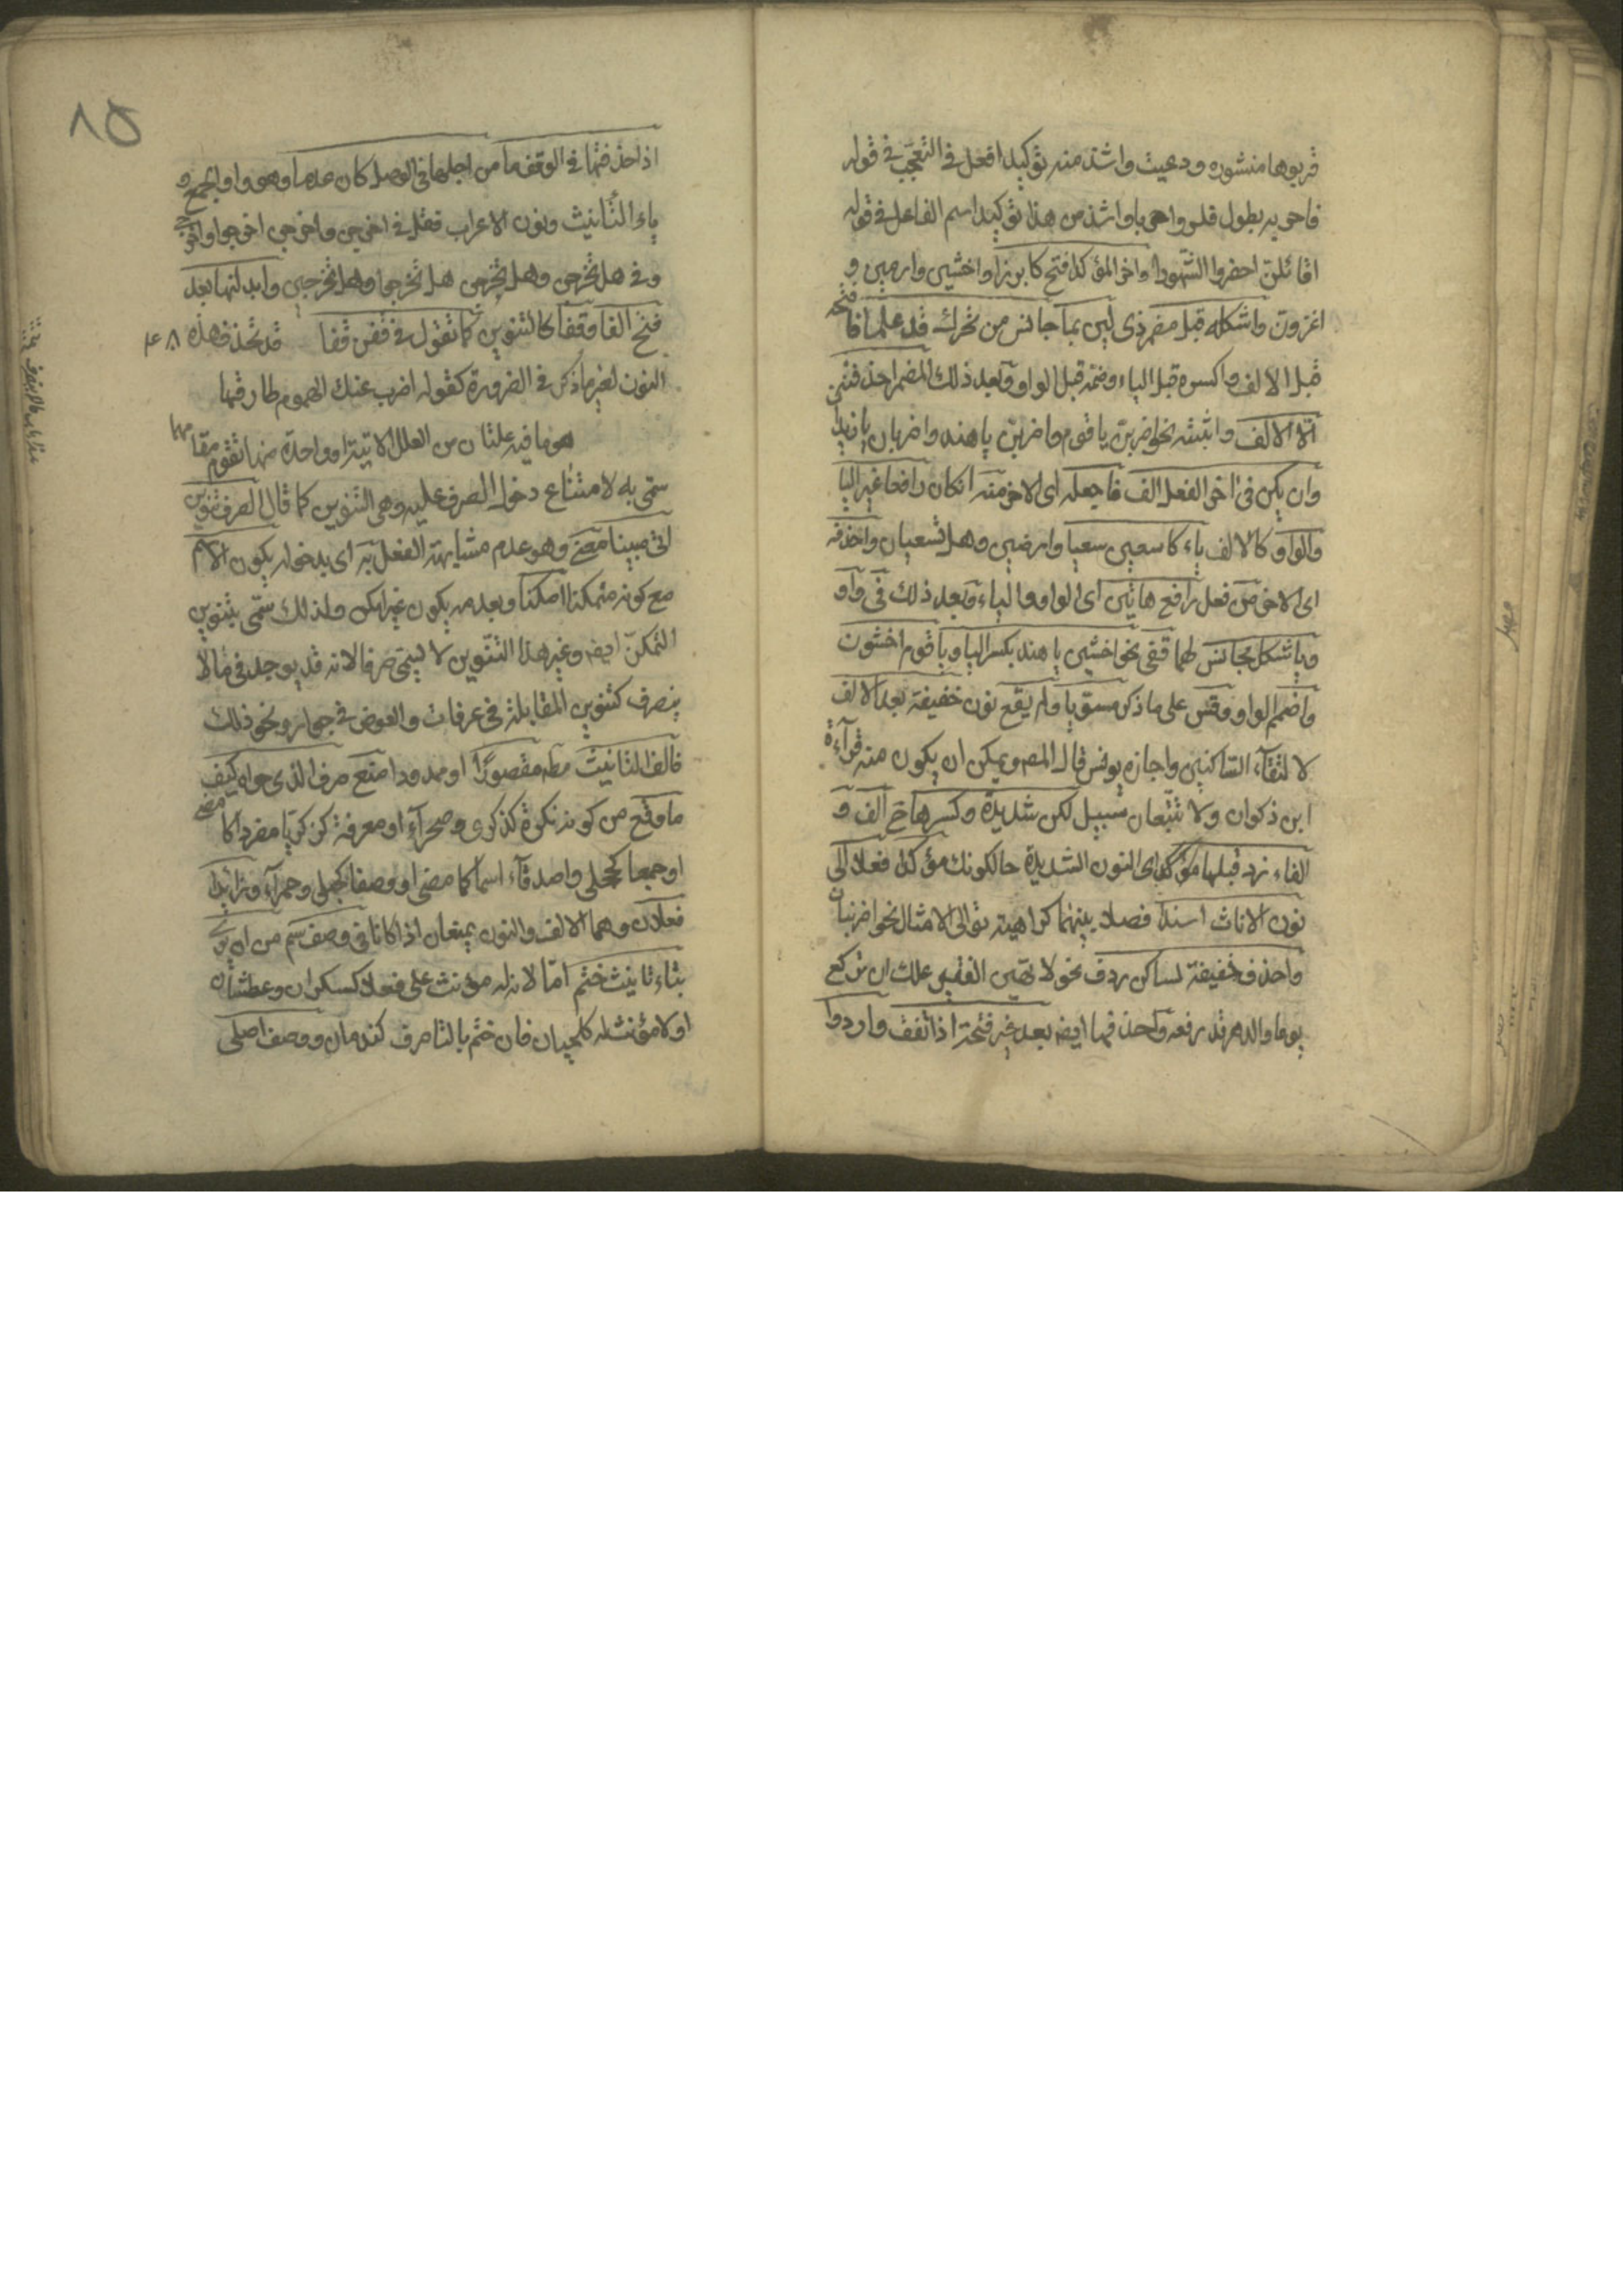 قربوها منشوره ودعيت واشذ منه توكيد افعل في التعجب في قوله
فاحر به بطول فقر واحريا واشذ من هذا توكيد اسم الفاعل في قوله
اقائلن احضروا الشهودا واخر المؤكد افتح كابرزا واخشين وارمين و
اغزون واشكله قبل مضمر ذي لين بما جانس من تحرك قد علما فافتحه
قبل الالف واكسره قبل الياء وضمه قبل الواو وبعد ذلك المضمر احذفنه
الا الالف واثبته نحو اضربن يا قوم واضربن يا هند واضربان يا زيدا
وان يكن في اخر الفعل الف فاجعله اي الاخر منه ان كان رافعا غير اليا
والواو كالالف ياء كاسعين سعيا وارضين وهل تسعيان واحذفه
اي الاخر من فعل رافع هاتين اي الواو والياء وبعد ذلك في واو
ويا شكل مجانس لهما قفي نحو اخشين يا هند بكسر اليا ويا قوم اخشون
واضمم الواو وقس على ما ذكر مسويا ولم يقع نون خفيفة بعد الالف
لالتقاء الساكنين واجازه يونس قال المص ويمكن ان يكون منه قرآءة
ابن ذكوان ولا تتبعان سبيل لكن شديدة وكسرها ح الف و
الفاء زد قبلها مؤكدا اي النون الشديدة حال كونك مؤكدا فعلا الى
نون الاناث اسندا فصلا بينهما كراهية توالى الامثال نحو اضربنان
واحذف خفيفة لساكن ردف نحو لا تهين الفقير علك ان تركع
يوما والدهر قد رفعه واحذفها ايض بعد غير فتحة اذا تقف واردد
٨٥
اذا حذفتها في الوقف ما من اجلها في الوصل كان عدما وهو واو الجمع و
ياء التأنيث ونون الاعراب فقل في اخرجن واخرجن اخرجوا واخرجي
وفي هل تخرجن وهل تخرجن هل تخرجوا وهل تخرجين وابدلنها بعد
فتح الفا وقفا كالتنوين كما تقول في قفن قفا قد تحذف هذه
النون لغير ما ذكر في الضرورة كقوله اضرب عنك الهموم طارقها
هو ما فيه علتان من العلل الاتية او واحدة منها تقوم مقامهما
سمي به لامتناع دخول الصرف عليه وهي التنوين كما قال الصرف تنوين
اتى مبينا معنى وهو عدم مشابهة الفعل به اي بدخوله يكون الاسم
مع كونه متمكنا امكنا وبعدمه يكون غير امكن ولذلك سمي بتنوين
التمكن ايض وغير هذا التنوين لا يسمى صرفا لانه قد يوجد في ما لا
ينصرف كتنوين المقابلة في عرفات والعوض في جوار ونحو ذلك
فالف التانيث مط مقصورا او ممدودا منع صرف الذي حواه كيف
ما وقع من كونه نكرة كذكرى وصحرآء او معرفة كزكريا مفردا كما مضى
او جمعا كحجلى واصدقآء اسما كما مضى او وصفا كحبلى وحمرآء وزائدا
فعلان وهما الالف والنون يمنعان اذا كانا في وصف سلم من ان يرى
بتاء تانيث ختم اما لانه له مؤنث على فعلى كسكران وعطشان
او لا مؤنث له كلحيان فان ختم بالتا صرف كندمان ووصف اصلي